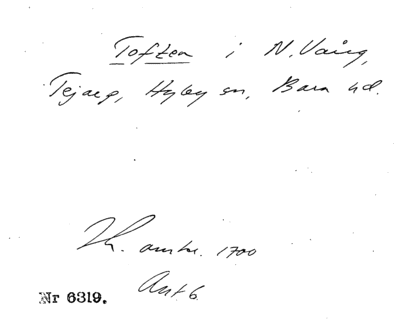 Toften i N. Vång,
Tejarp, Hyby sn, Bara hd.
Lh. antkr. 1700
Ant 6.
Nr 6319.